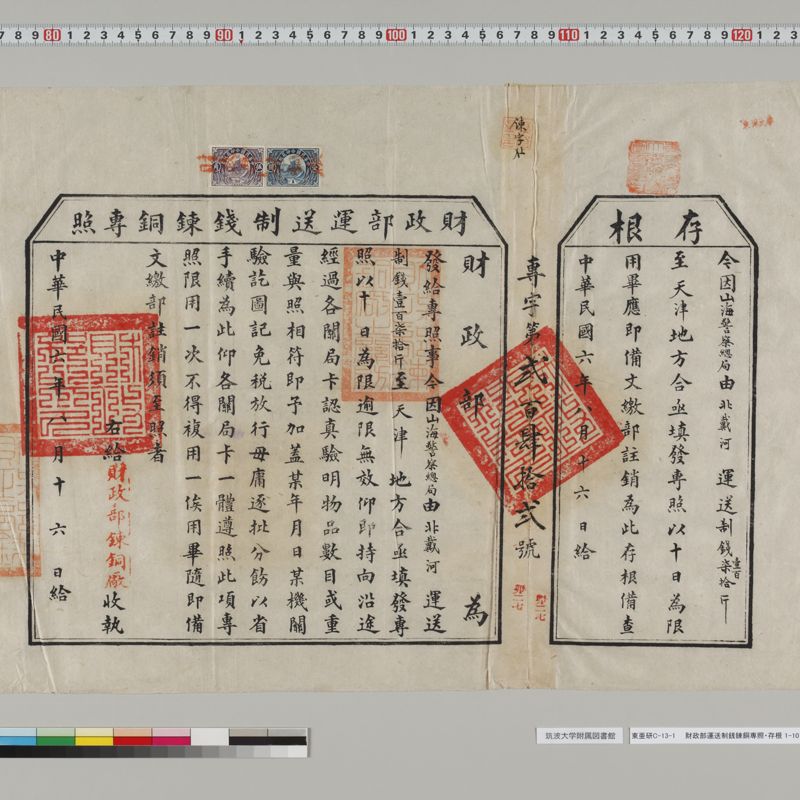 存根
令因山海警察總局由北戴河運送制錢壹百柒拾斤
至天津地方合亟填發專照以十日為限
用畢應即備文繳部註銷為此存根備查
中華民國六年八月十六日給
專字第貳百肆拾貳號
財政部運送制錢鍊銅專照
財政部為
發給專照事今因山海警察總局由北戴河運送
制錢壹百柒拾斤至天津地方合亟填發專
照以十日為限逾限無效仰即持向沿途
經過各關局卡認真驗明物品數目或重
量與照相符即予加蓋某年月日某機關
驗訖圖記免稅放行毋庸逐批分飭以省
手續為此仰各關局卡一體遵照此項專
照限用一次不得複用一俟用畢隨即備
文繳部註銷須至照者
右給財政部鍊銅廠收執
中華民國六年八月十六日給
筑波大学附属図書館
東亜研C-13-1 財政部運送制銭錬銅専照・存根 1-10